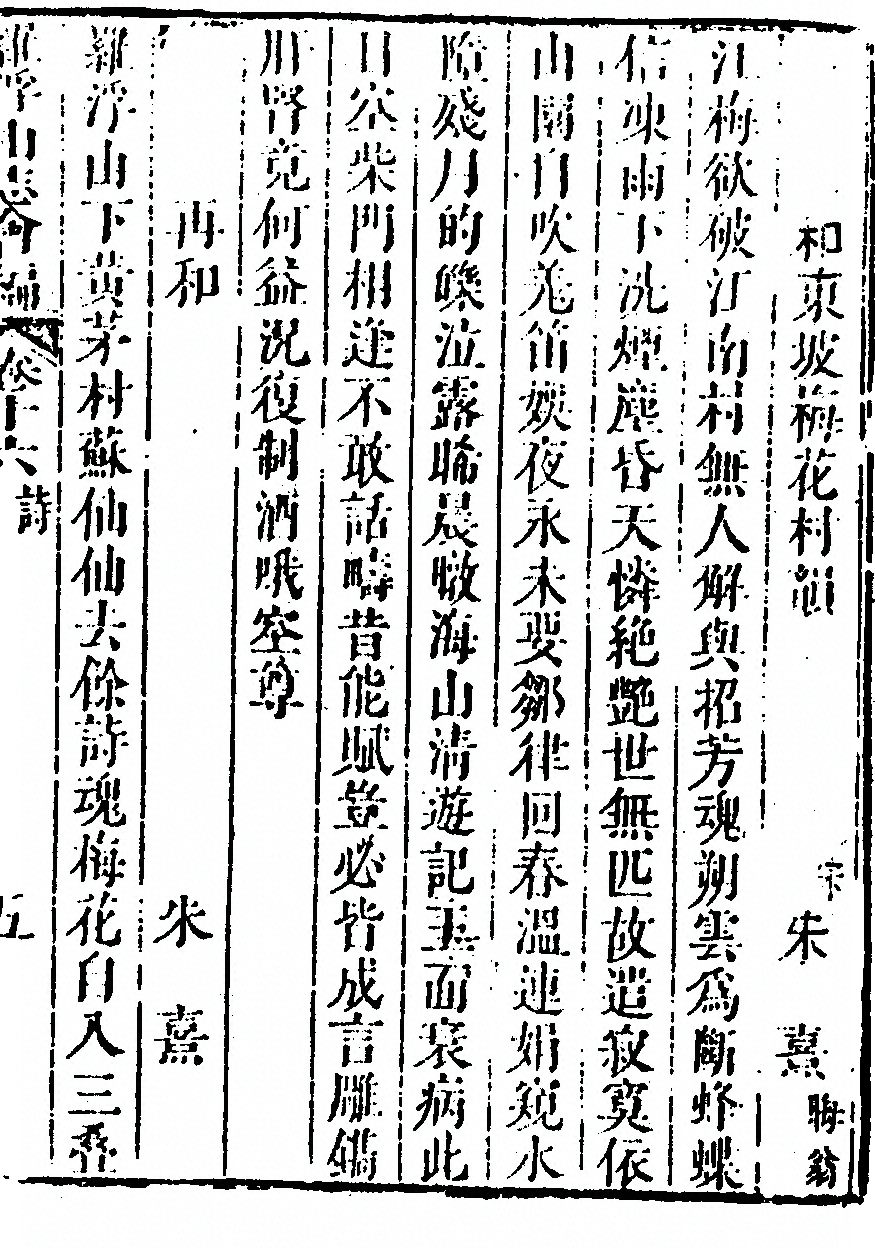 和東坡梅花村韻 宋 朱熹 晦翁
江梅欲破江南村無人解與招芳魂朔雲爲斷蜂蝶
信凍雨下洗煙塵昏天憐絶艷世無匹故遣寂寞依
山園自吹羌笛娛夜永未要鄒律回春溫連娟窺水
陰殘月的皪泣露晞晨暾海山清遊記玉面衰病此
日空柴門相逢不敢話疇昔能賦豈必皆成言雕鐫
肝腎竟何益況復制酒哦空尊
再和 朱熹
羅浮山下黃茅村蘇仙仙去餘詩魂梅花自入三疊
羅浮山志會編 卷十六 詩 五